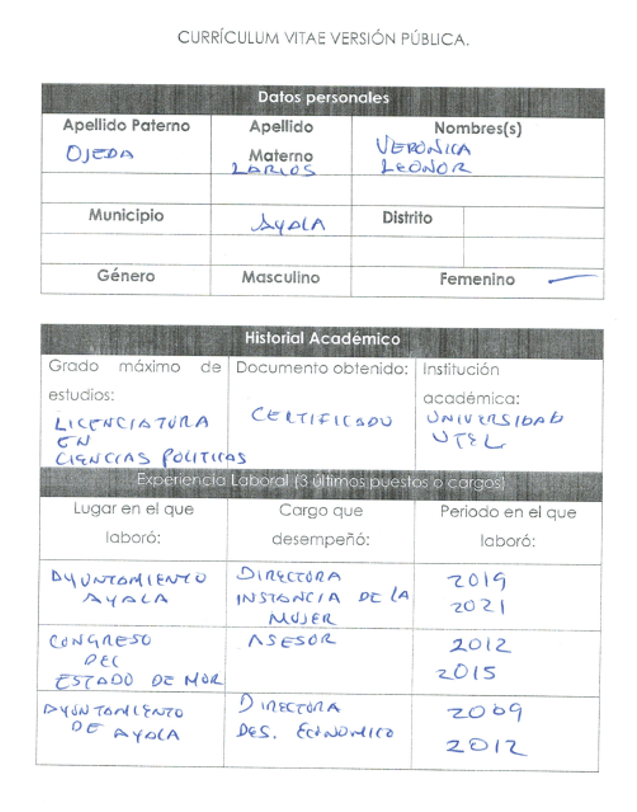 CURRÍCULUM VITAE VERSIÓN PÚBLICA.
Datos personales
Apellido Paterno
OJEDA
Apellido
Materno
LARIOS
Nombres(s)
VERONICA
LEONOR
Municipio
AYALA
Distrito
Género
Masculino
Femenino
Historial Académico
Grado máximo de
estudios:
LICENCIATURA
EN
CIENCIAS POLITICAS
Documento obtenido:
CERTIFICADO
Institución
académica:
UNIVERSIDAD
UTEL
Experiencia Laboral (3 últimos puestos o cargos)
Lugar en el que
laboró:
Cargo que
desempeñó:
Periodo en el que
laboró:
AYUNTAMIENTO
AYALA
DIRECTORA
INSTANCIA DE LA
MUJER
2019
2021
CONGRESO
DEL
ESTADO DE MOR
ASESOR
2012
2015
AYUNTAMIENTO
DE AYALA
DIRECTORA
DES. ECONOMICO
2009
2012